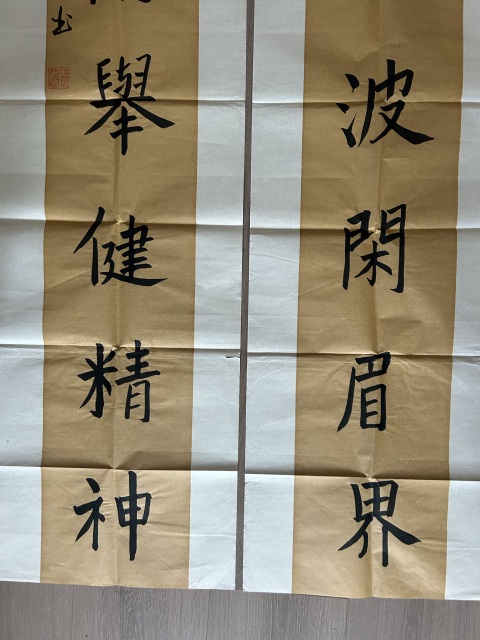 波閑眉界
舉健精神
书